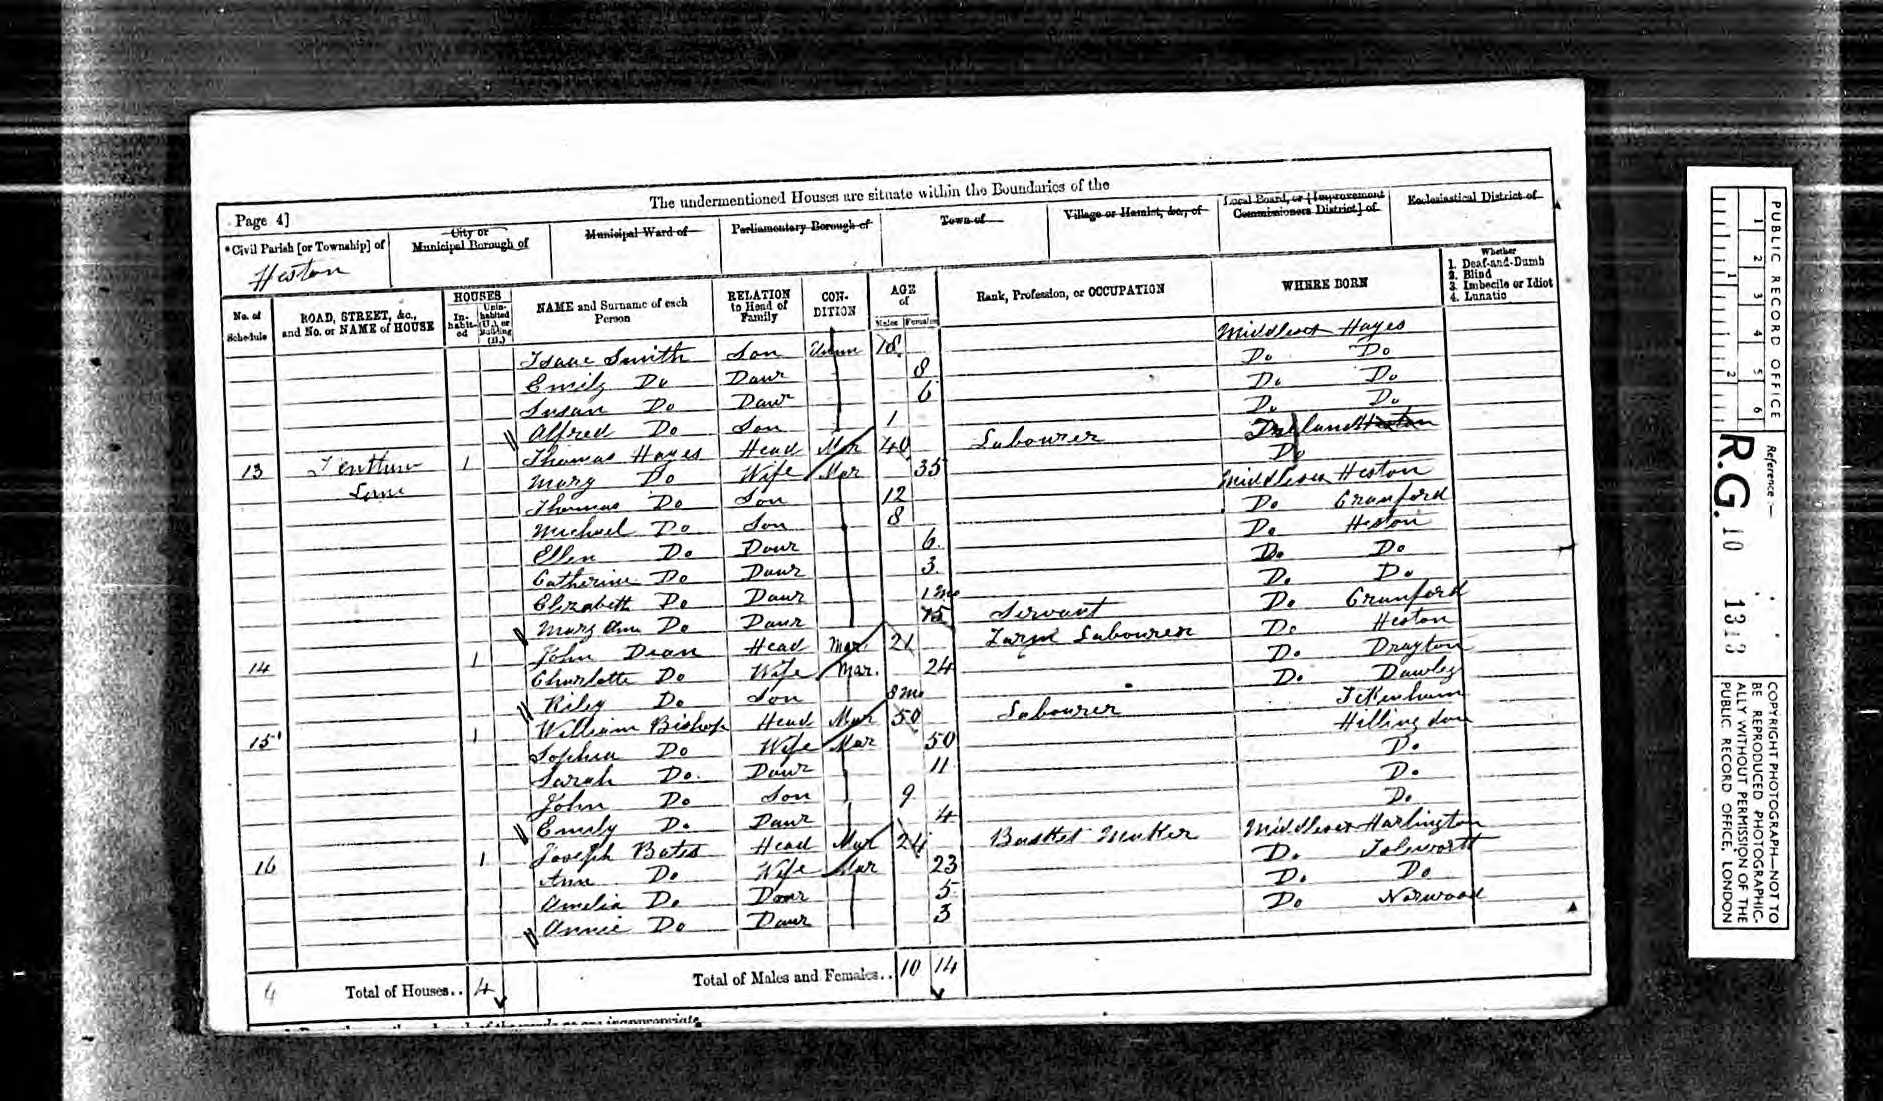 The undermentioned Houses are situate within the Boundaries of the
Page 4]
*Civil Parish [or Township] of
Heston
City or Municipal Borough of
Municipal Ward of
Parliamentary Borough of
Town of
Village or Hamlet, &c., of
Local Board, or [Improvement Commissioners District] of
Ecclesiastical District of
No. of Schedule
ROAD, STREET, &c., and No. or NAME of HOUSE
HOUSES
Inhabited
Uninhabited (U.), or Building (B.)
NAME and Surname of each Person
RELATION to Head of Family
CONDITION
AGE of
Males
Females
Rank, Profession, or OCCUPATION
WHERE BORN
Whether
1. Deaf-and-Dumb
2. Blind
3. Imbecile or Idiot
4. Lunatic
Isaac Smith Son Unm 18 Middlesex Hayes
Emily Do Daur 8 Do Do
Susan Do Daur 6 Do Do
Alfred Do Son 1 Do Do
13 Lane 1 Thomas Hayes Head Mar 40 Labourer Ireland Heston
Mary Do Wife Mar 35 Do
Thomas Do Son 12 Middlesex Heston
Michael Do Son 8 Do Cranford
Ellen Do Daur 6 Do Heston
Catherine Do Daur 3 Do Do
Elizabeth Do Daur 1 mo Do Do
Mary Ann Do Daur 15 Servant Do Cranford
14 1 John Dean Head Mar 21 Farm Labourer Do Heston
Charlotte Do Wife Mar. 24 Do Drayton
Riley Do Son 8 mo Do Dawley
15 1 William Bishop Head Mar 50 Labourer Ickenham
Sophia Do Wife Mar 50 Hillingdon
Sarah Do. Daur 11 Do
John Do Son 9 Do
Emily Do Daur 4 Do
16 1 Joseph Bates Head Mar 24 Basket Maker Middlesex Harlington
Ann Do Wife Mar 23 Do. Isleworth
Amelia Do Daur 5 Do. Do
Annie Do Daur 3 Do Norwood
4 Total of Houses.. 4
Total of Males and Females.. 10 14
PUBLIC RECORD OFFICE
1 2 3 4 5 6
1 2
Reference:-
R.G. 10 1313
COPYRIGHT PHOTOGRAPH—NOT TO
BE REPRODUCED PHOTOGRAPHIC-
ALLY WITHOUT PERMISSION OF THE
PUBLIC RECORD OFFICE, LONDON